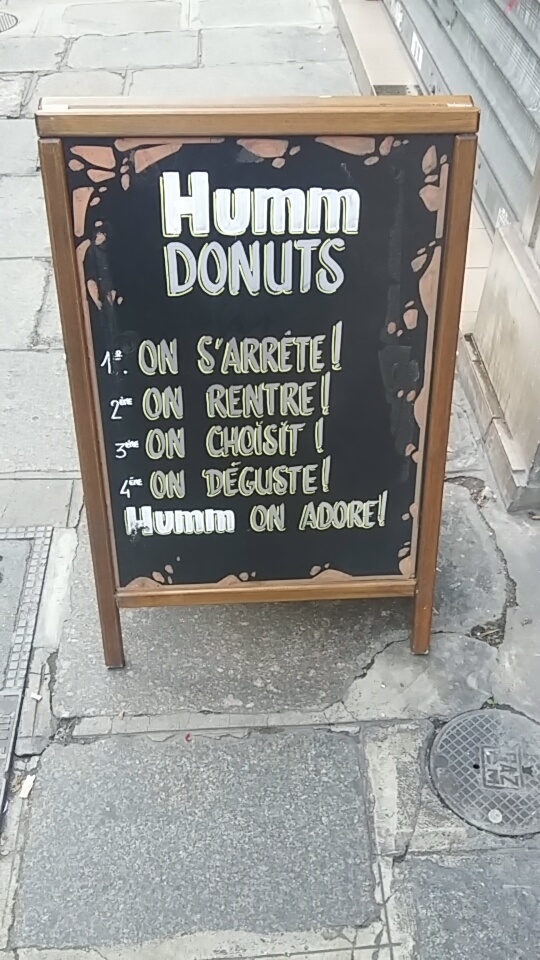 Humm
DONUTS
1º. ON S'ARRÉTE!
2ème ON RENTRE!
3ème ON CHOISIT!
4ème ON DÉGUSTE!
Humm ON ADORE!
GAZ